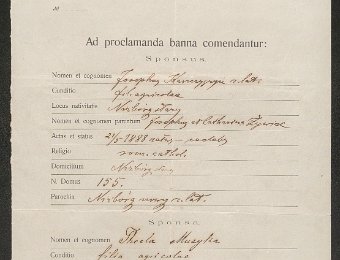 №
Ad proclamanda banna comendantur:
Sponsus
Nomen et cognomen Josephus r. lat.
Conditio fil. agricolae
Locus nativitatis Niżborg
Nomen et cognomen parentum Josephus et Catharina
Aetas et status 1888
Religio rom. cathol.
Domicilium Niżborg
N. Domus 155.
Parochia Niżborg nowy r. lat.
Sponsa
Nomen et cognomen Thecla Muzyka
Conditio filia agricolae